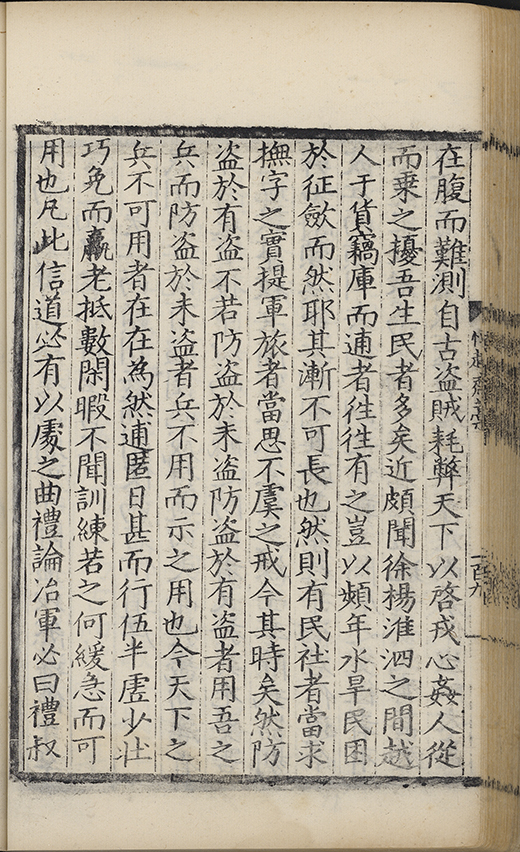 在腹而難測自古盗賊耗弊天下以啓戎心姦人從
而乗之擾吾生民者多矣近頗聞徐楊淮泗之間越
人于貨竊庫而逋者徃徃有之豈以頻年水旱民困
於征斂而然耶其漸不可長也然則有民社者當求
撫字之實提軍旅者當思不虞之戒今其時矣然防
盗於有盗不若防盗於未盗防盗於有盗者用吾之
兵而防盗於未盗者兵不用而示之用也今天下之
兵不可用者在在為然逋匿日甚而行伍半虛少壮
巧免而羸老抵數閑暇不聞訓練若之何緩急而可
用也凡此信道必有以處之曲禮論治軍必曰禮叔
一百九